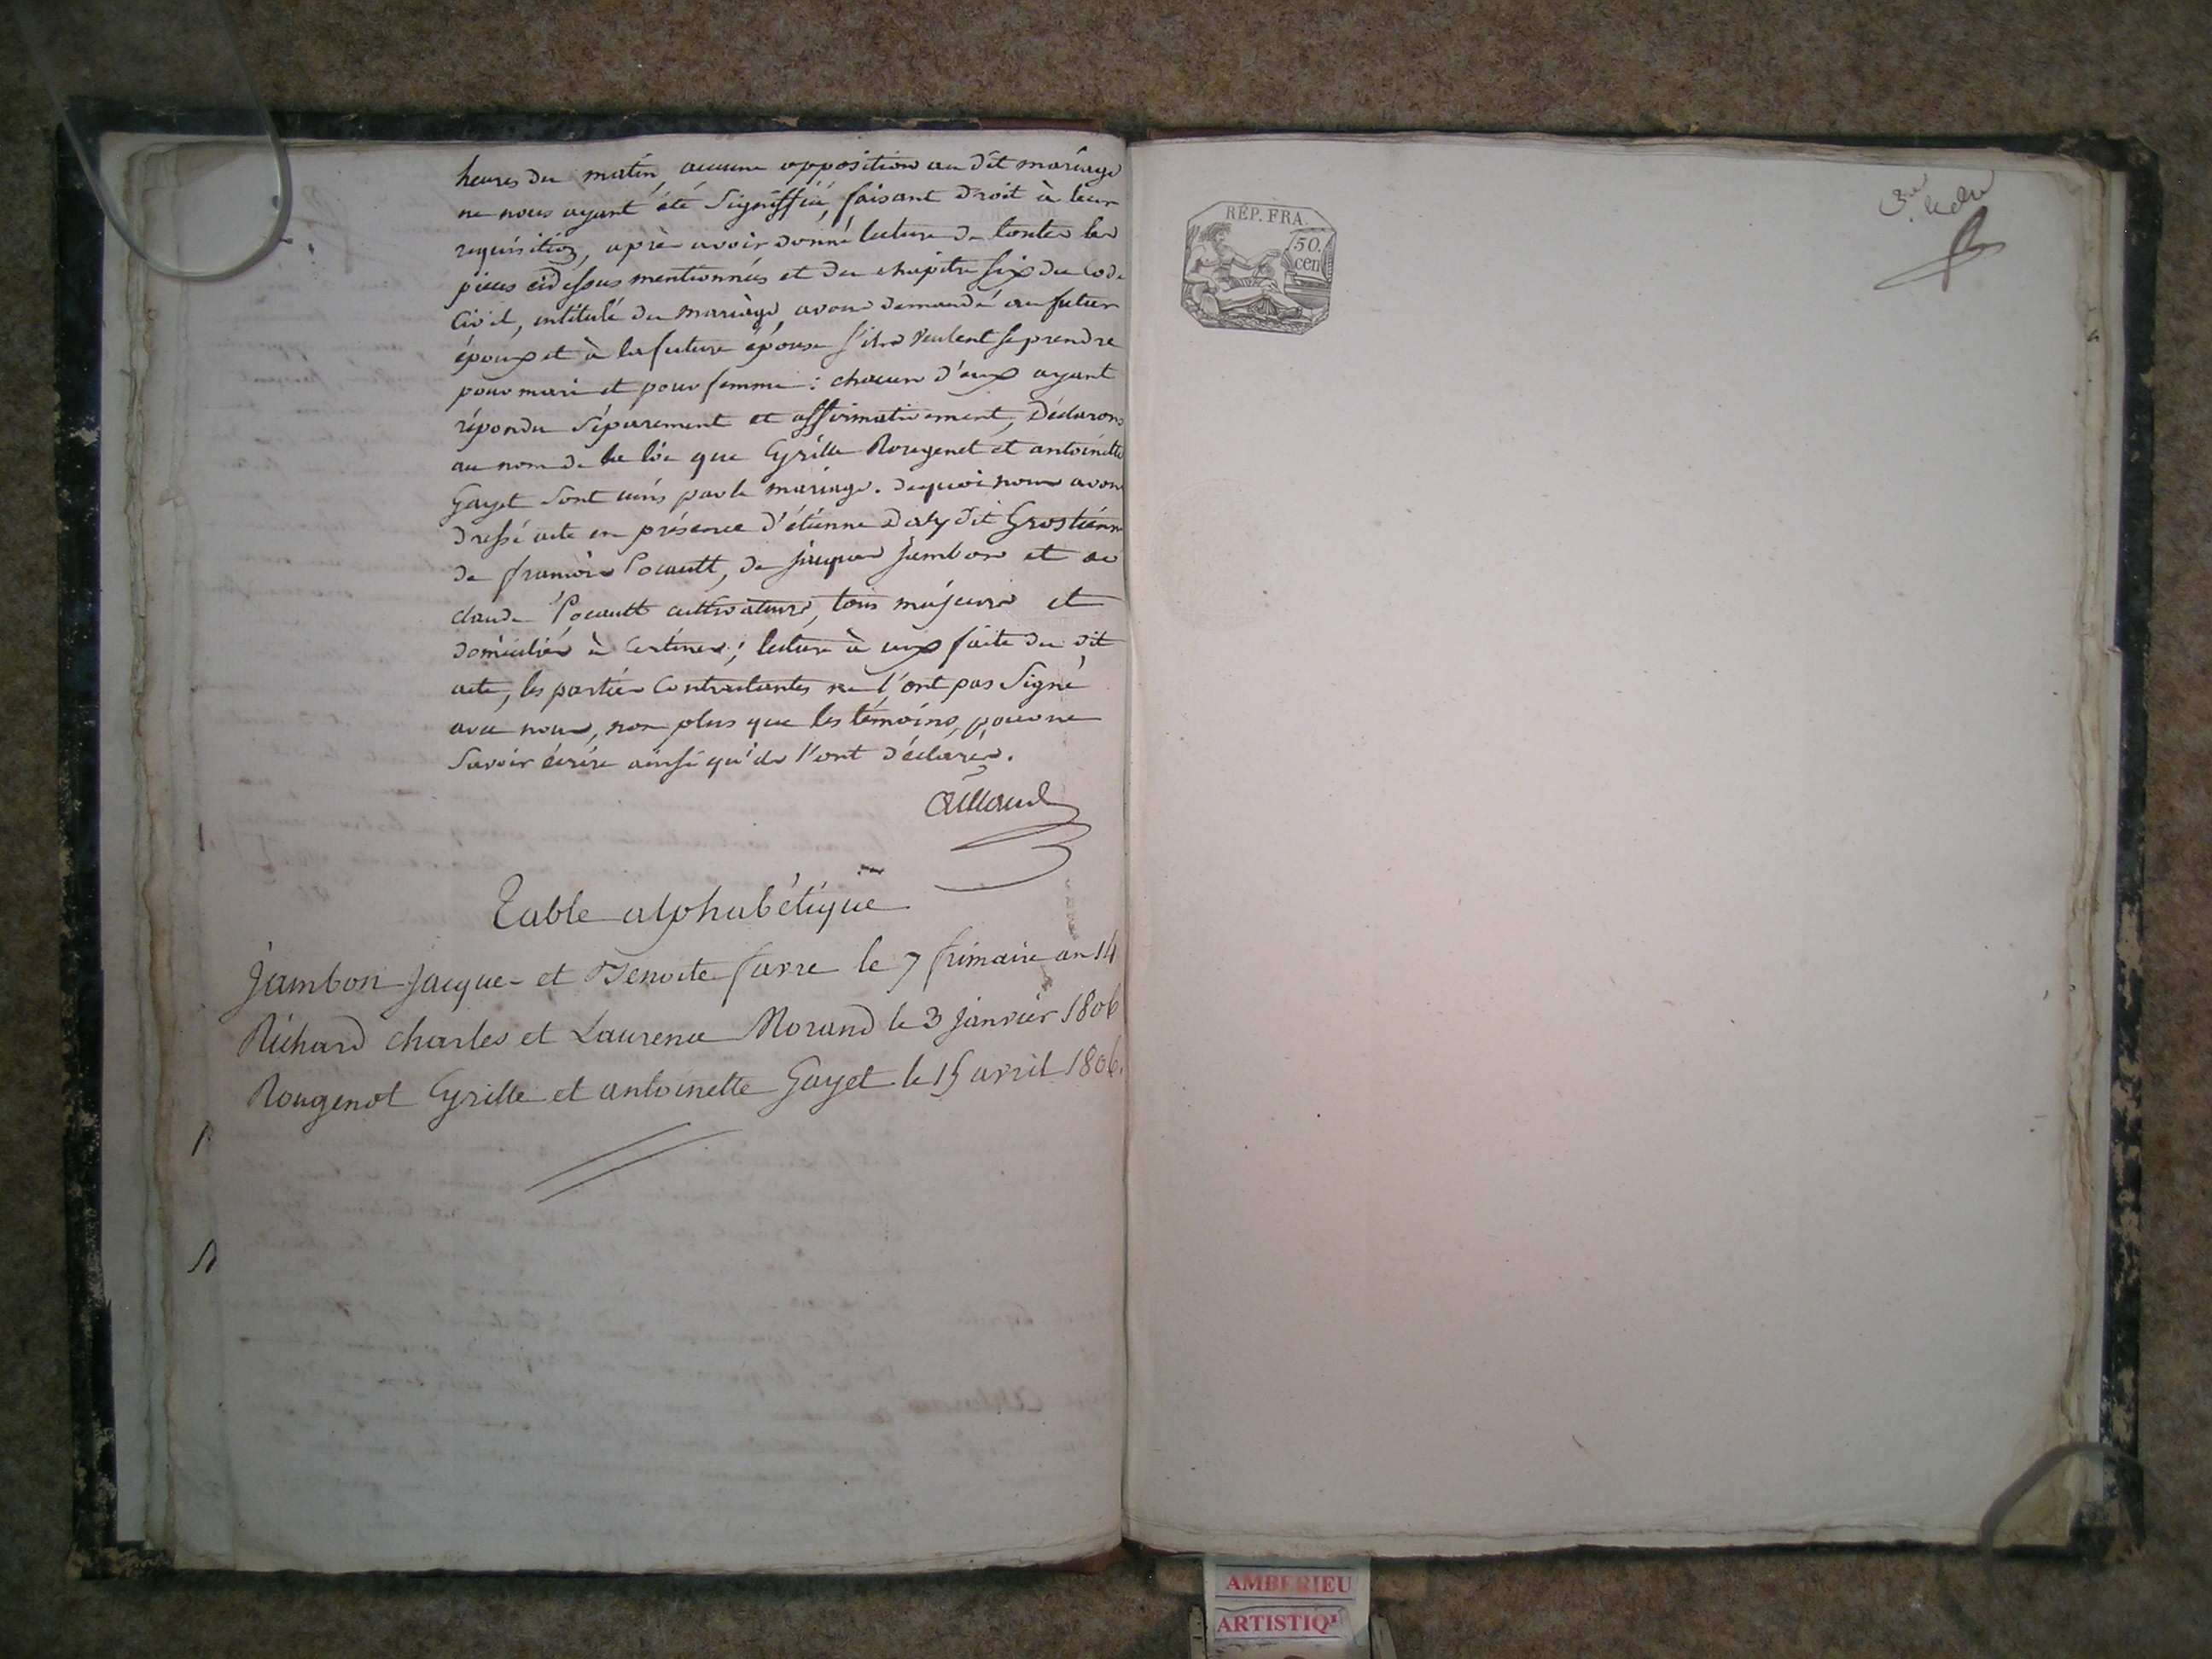 heures du matin, aucune opposition au dit mariage
ne nous ayant été Signiffiée, faisant Droit à leur
requisition, après avoir donné lecture de toutes les
pieces cidessus mentionnées et du chapitre six du Code
Civil, intitulé du mariage, avons demandé au futur
époux et à la future épouse s'ils veulent se prendre
pour mari et pour femme : chacun d'eux ayant
répondu Séparement et affirmativement, Déclarons
au nom de la loi que Cyrille Rougenet et antoinette
Gayet Sont unis par le mariage. dequoi nous avons
dressé acte en présence d'étienne Daty dit Grostiénne
de françois Pocault, de jacques jambon et de
claude Pocault cultivateurs, tous majeurs et
domiciliés à Certines ; lecture à eux faite du dit
acte, les parties Contractantes ne l'ont pas Signé
avec nous, non plus que les témoins, pour ne
Savoir écrire ainsi qu'ils l'ont déclarés.
Table alphabétique
Jambon Jacque et Benoite favre le 7 frimaire an 14
Richard charles et Laurence Morand le 3 janvier 1806
Rougenot Cyrille et antoinette Gayet le 15 avril 1806.
RÉP. FRA.
50.
cen
AMBERIEU
ARTISTIQ